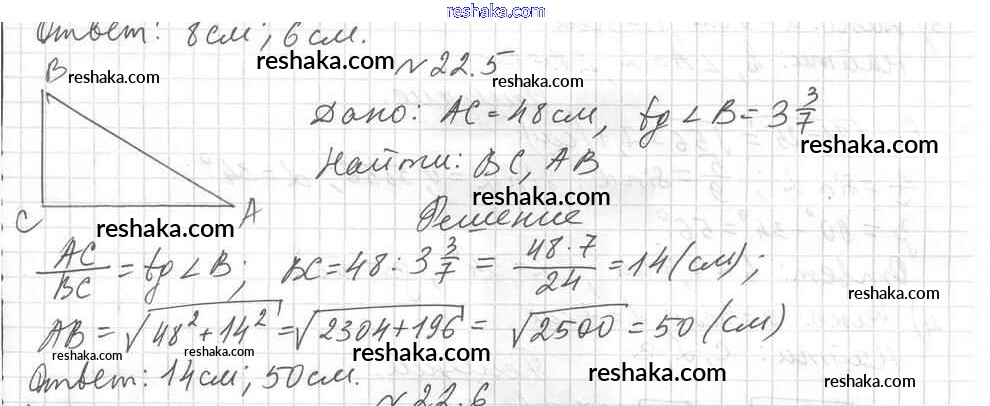 reshaka.com
Ответ: 8см; 6см.
reshaka.com
№22.5
B reshaka.com
reshaka.com
Дано: AC=48см, tg∠B=3 3/7
reshaka.com
Найти: BC, AB
C A
reshaka.com
Решение
AC/BC=tg∠B; BC=48:3 3/7=48·7/24=14(см);
reshaka.com
AB=√48²+14²=√2304+196=√2500=50(см)
reshaka.com reshaka.com reshaka.com reshaka.com
Ответ: 14см; 50см.
reshaka.com reshaka.com
№22.6